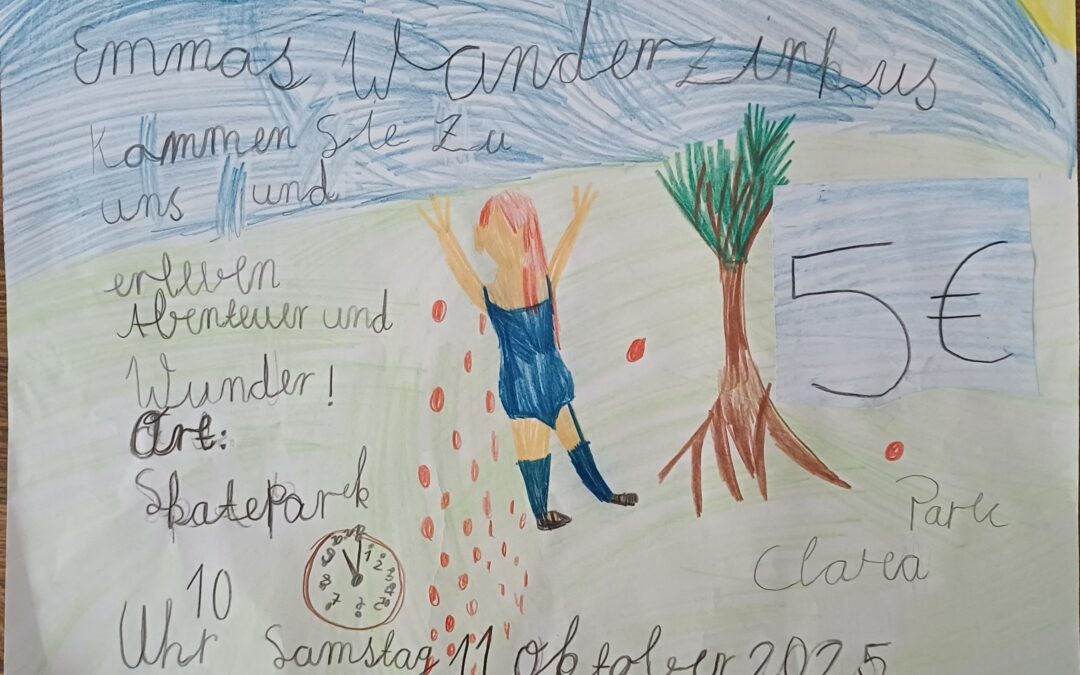 Emmas Wanderzirkus
Kommen Sie Zu
uns und
erleben
Abenteuer und
Wunder!
5€
Ort:
Skatepark
Park
Clara
10
Uhr Samstag 11 Oktober 2025